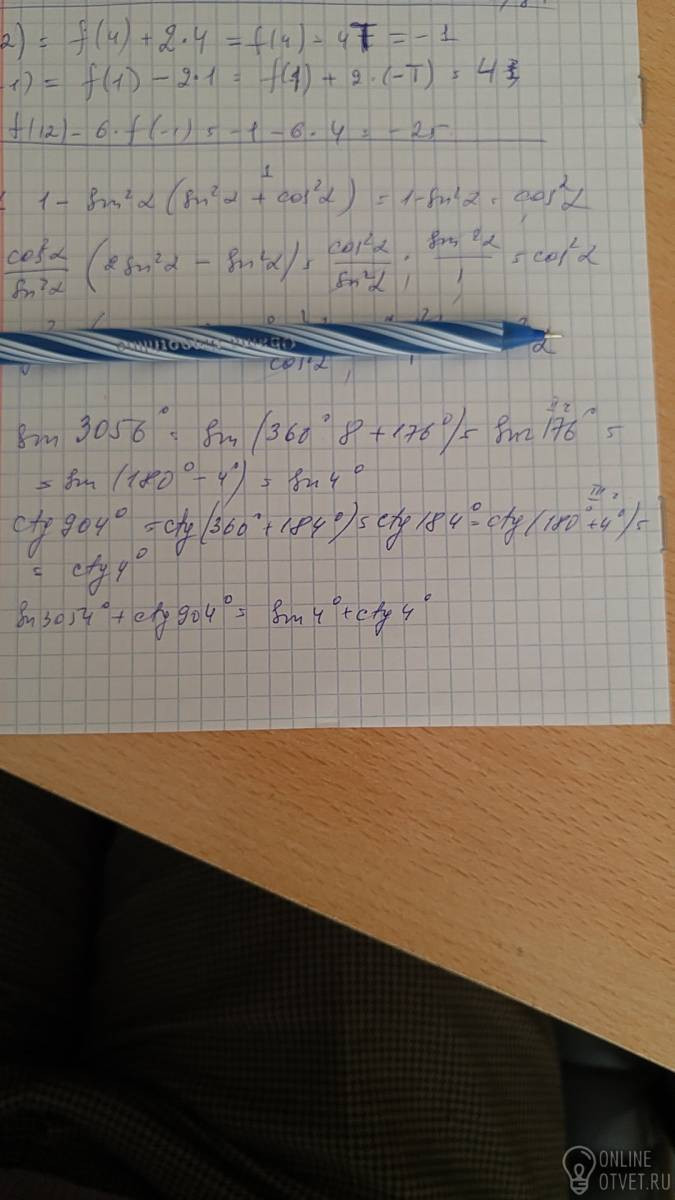 2) = f(4) + 2·4 = f(4) - 4T = -1
-1) = f(1) - 2·1 = f(1) + 2·(-T) = 4
f(12) - 6·f(-1) = -1 - 6·4 = -25
1 - sin²α (sin²α + cos²α) = 1 - sin²α = cos²α
1
cos²α/sin²α (2sin²α - sin²α) = cos²α/sin²α · sin²α/1 = cos²α
cos²α
sin 3056° = sin (360°·8 + 176°) = sin 176° =
= sin (180° - 4°) = sin 4°
ctg 904° = ctg (360° + 184°) = ctg 184° = ctg (180° + 4°) =
= ctg 4°
sin 3054° + ctg 904° = sin 4° + ctg 4°
ONLINE
OTVET.RU